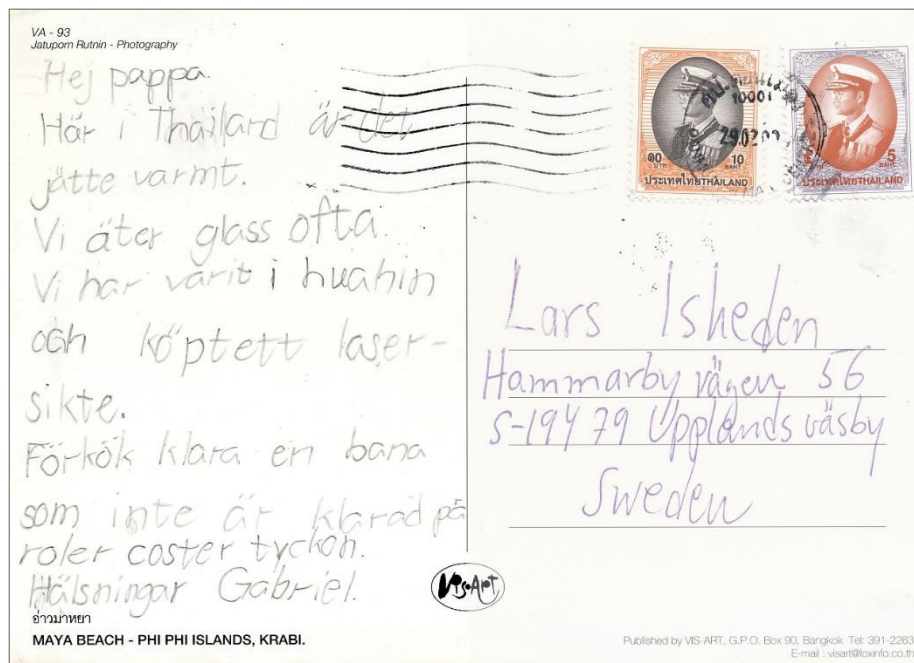 VA - 93
Jatuporn Rutnin - Photography
Hej pappa.
Här i Thailand är det
jätte varmt.
Vi äter glass ofta.
Vi har varit i huahin
och köptett laser-
sikte.
Förkök klara en bana
som inte är klarad på
roler coster tyckon.
Hälsningar Gabriel.
อ่าวมาหยา
MAYA BEACH - PHI PHI ISLANDS, KRABI.
10001
29.02.00
๑๐ บาท
10 BAHT
ประเทศไทย THAILAND
5 BAHT
ประเทศไทย THAILAND
Lars Isheden
Hammarby vägen 56
S-194 79 Upplands väsby
Sweden
VIS-ART
Published by VIS-ART, G.P.O. Box 90, Bangkok Tel: 391-2263
E-mail : visart@loxinfo.co.th